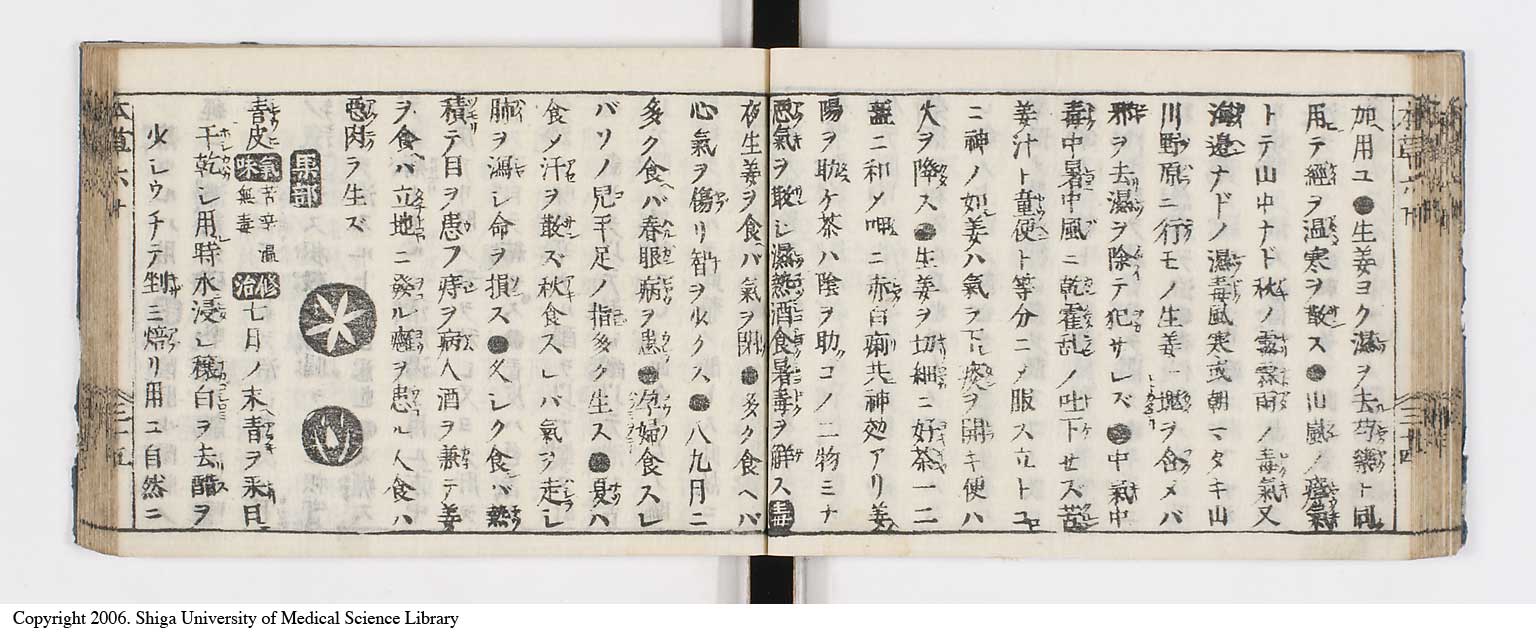 加用ユ●生姜ヨク濕ヲ去芍藥ト同
用テ經ヲ温寒ヲ散ス●山嵐ノ瘴氣
トテ山中ナド秋ノ霧霖雨ノ毒氣又
海邉ナドノ濕毒風寒或朝マタキ山
川野原ニ行モノ生姜一塊ヲ含メバ
邪ヲ去濕ヲ除テ犯サレズ●中氣中
毒中暑中風ニ乾霍乱ノ吐下せズ苦
姜汁ト童便ト等分ニメ服ス立トコロ
ニ神ノ如姜ハ氣ヲ下シ痰ヲ開キ便ハ
火ヲ降ス●生姜ヲ切細ニ好茶一二
盞ニ和メ呷ニ赤白痢共神効アリ姜
陽ヲ助ケ茶ハ陰ヲ助コノ二物ミナ
悪氣ヲ散シ濕熱酒食暑毒ヲ解ス 毒
夜生姜ヲ食ヘバ氣ヲ閉●多ク食ヘバ
心氣ヲ傷リ智ヲ少クス●八九月ニ
多ク食ヘバ春眼病ヲ患●孕婦食スレ
バソノ兒手足ノ指多ク生ス●夏ハ
食メ汗ヲ散ズ秋食スレバ氣ヲ走シ
肺ヲ瀉シ命ヲ損ス●久シク食バ熱
積テ目ヲ患フ痔ヲ病人酒ヲ兼テ姜
ヲ食バ立地ニ發ル癰ヲ患ル人食ハ
惡肉ヲ生ズ
果部
青皮 氣味 苦辛温無毒 修治 七月ノ末青ヲ采日
干乾シ用時水浸シ穰白ヲ去醋ヲ
火シウチテ剉ミ焙リ用ユ自然ニ
三十四
三十五
Copyright 2006. Shiga University of Medical Science Library